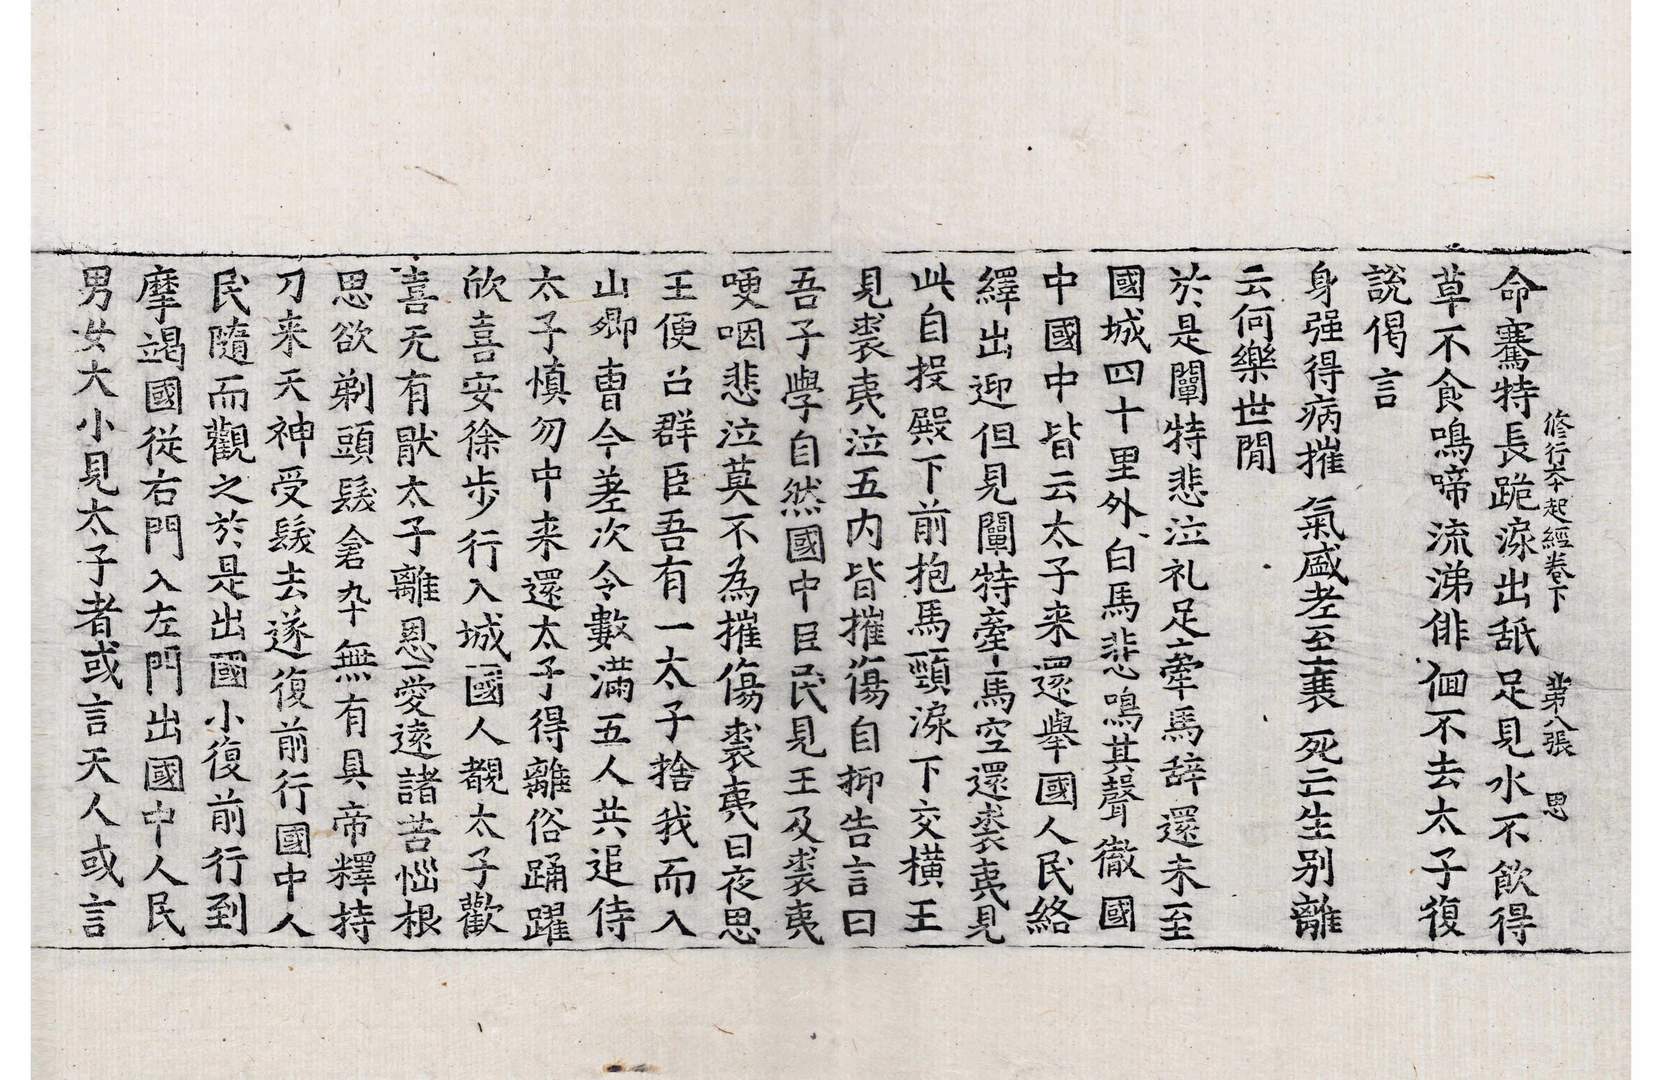 修行夲起經卷下　第八張　思
命騫特長跪淚出舐足見水不飲得
草不食鳴啼流涕俳佪不去太子復
說偈言
身强得病摧　氣盛老至衰　死亡生別離
云何樂世閒
於是闡特悲泣礼足牽馬辞還未至
國城四十里外白馬悲鳴其聲徹國
中國中皆云太子来還舉國人民絡
繹出迎但見闡特牽馬空還裘夷見
此自投殿下前抱馬頸淚下交橫王
見裘夷泣五內皆摧傷自抑告言曰
吾子學自然國中臣民見王及裘夷
哽咽悲泣莫不為摧傷裘夷日夜思
王便召群臣吾有一太子捨我而入
山卿曺今差次令數滿五人共追侍
太子慎勿中来還太子得離俗踊躍
欣喜安徐步行入城國人覩太子歡
喜无有猒太子離恩愛遠諸苦惱根
思欲剃頭髮倉卆無有具帝釋持
刀来天神受髮去遂復前行國中人
民隨而觀之於是出國小復前行到
摩竭國從右門入左門出國中人民
男女大小見太子者或言天人或言